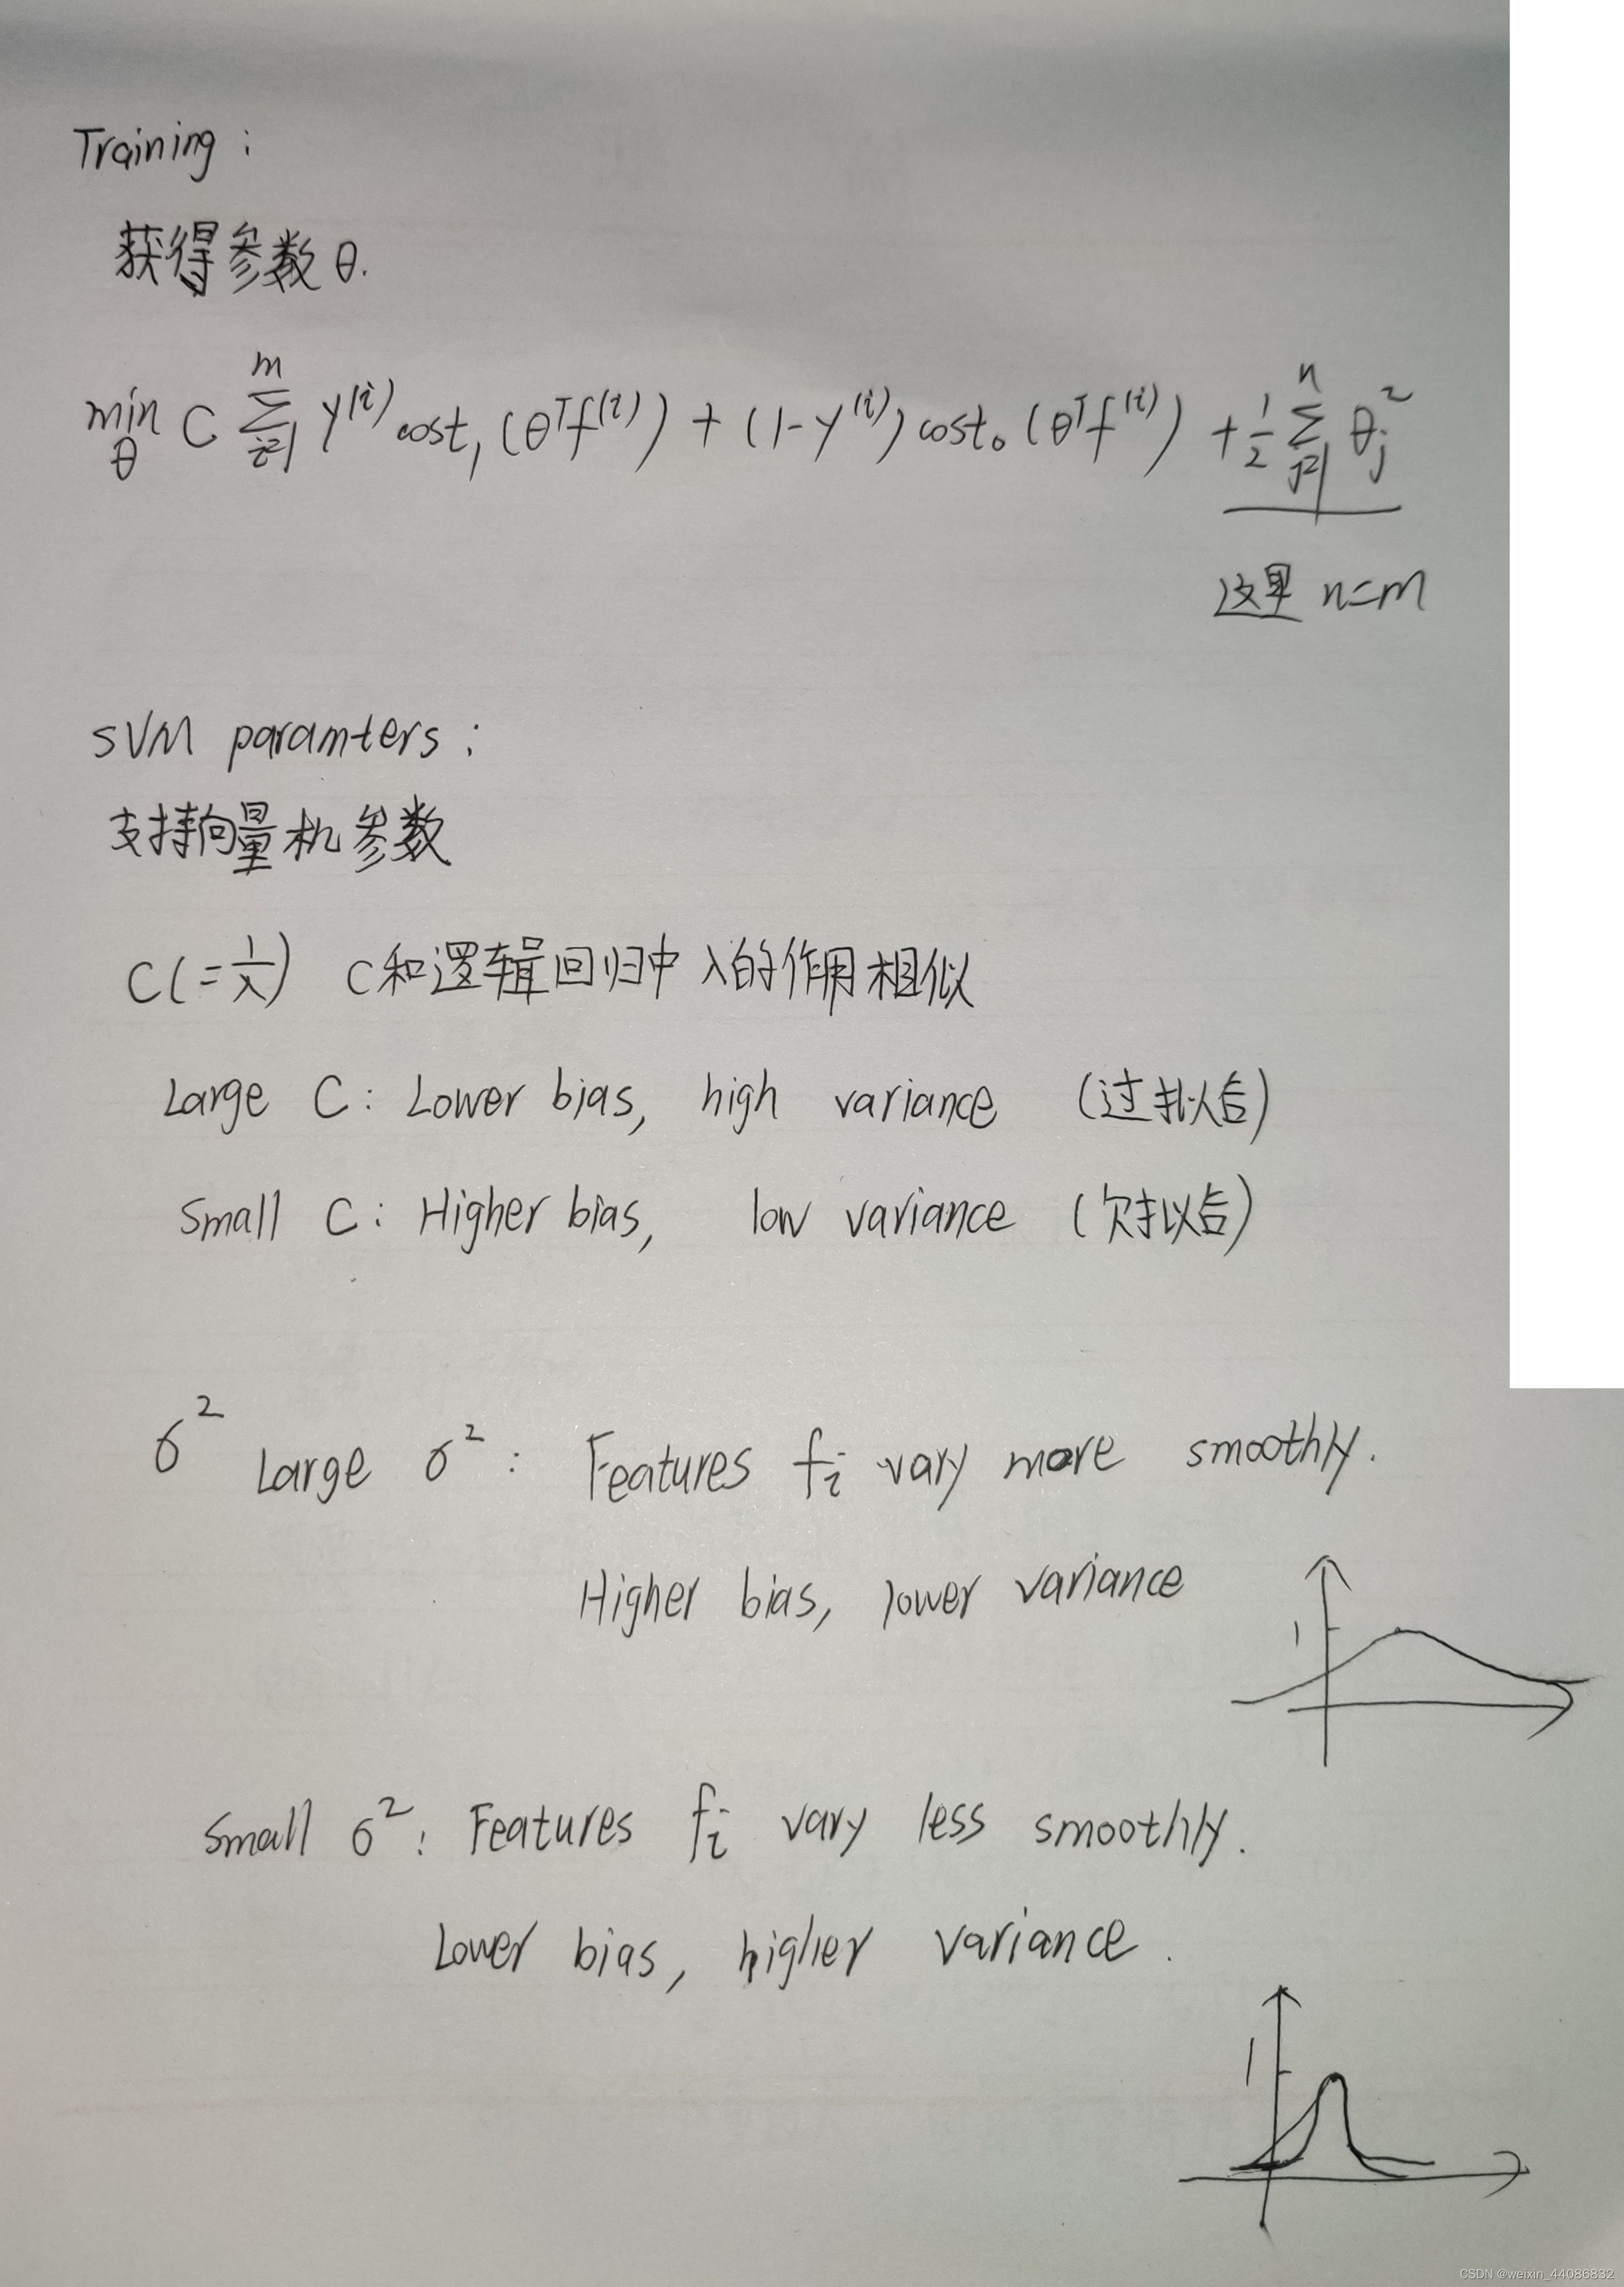 Training:
获得参数 θ.
min_θ C ∑_{i=1}^{m} y^{(i)} cost_1 (θ^T f^{(i)}) + (1-y^{(i)}) cost_0 (θ^T f^{(i)}) + 1/2 ∑_{j=1}^{n} θ_j^2
这里 n=m
SVM paramters:
支持向量机参数
C(=1/λ) C和逻辑回归中 λ的作用相似
Large C: Lower bias, high variance (过拟合)
Small C: Higher bias, low variance (欠拟合)
σ^2 Large σ^2: Features f_i vary more smoothly.
Higher bias, lower variance
1
Small σ^2: Features f_i vary less smoothly.
Lower bias, higher variance.
1
CSDN @weixin_44086832